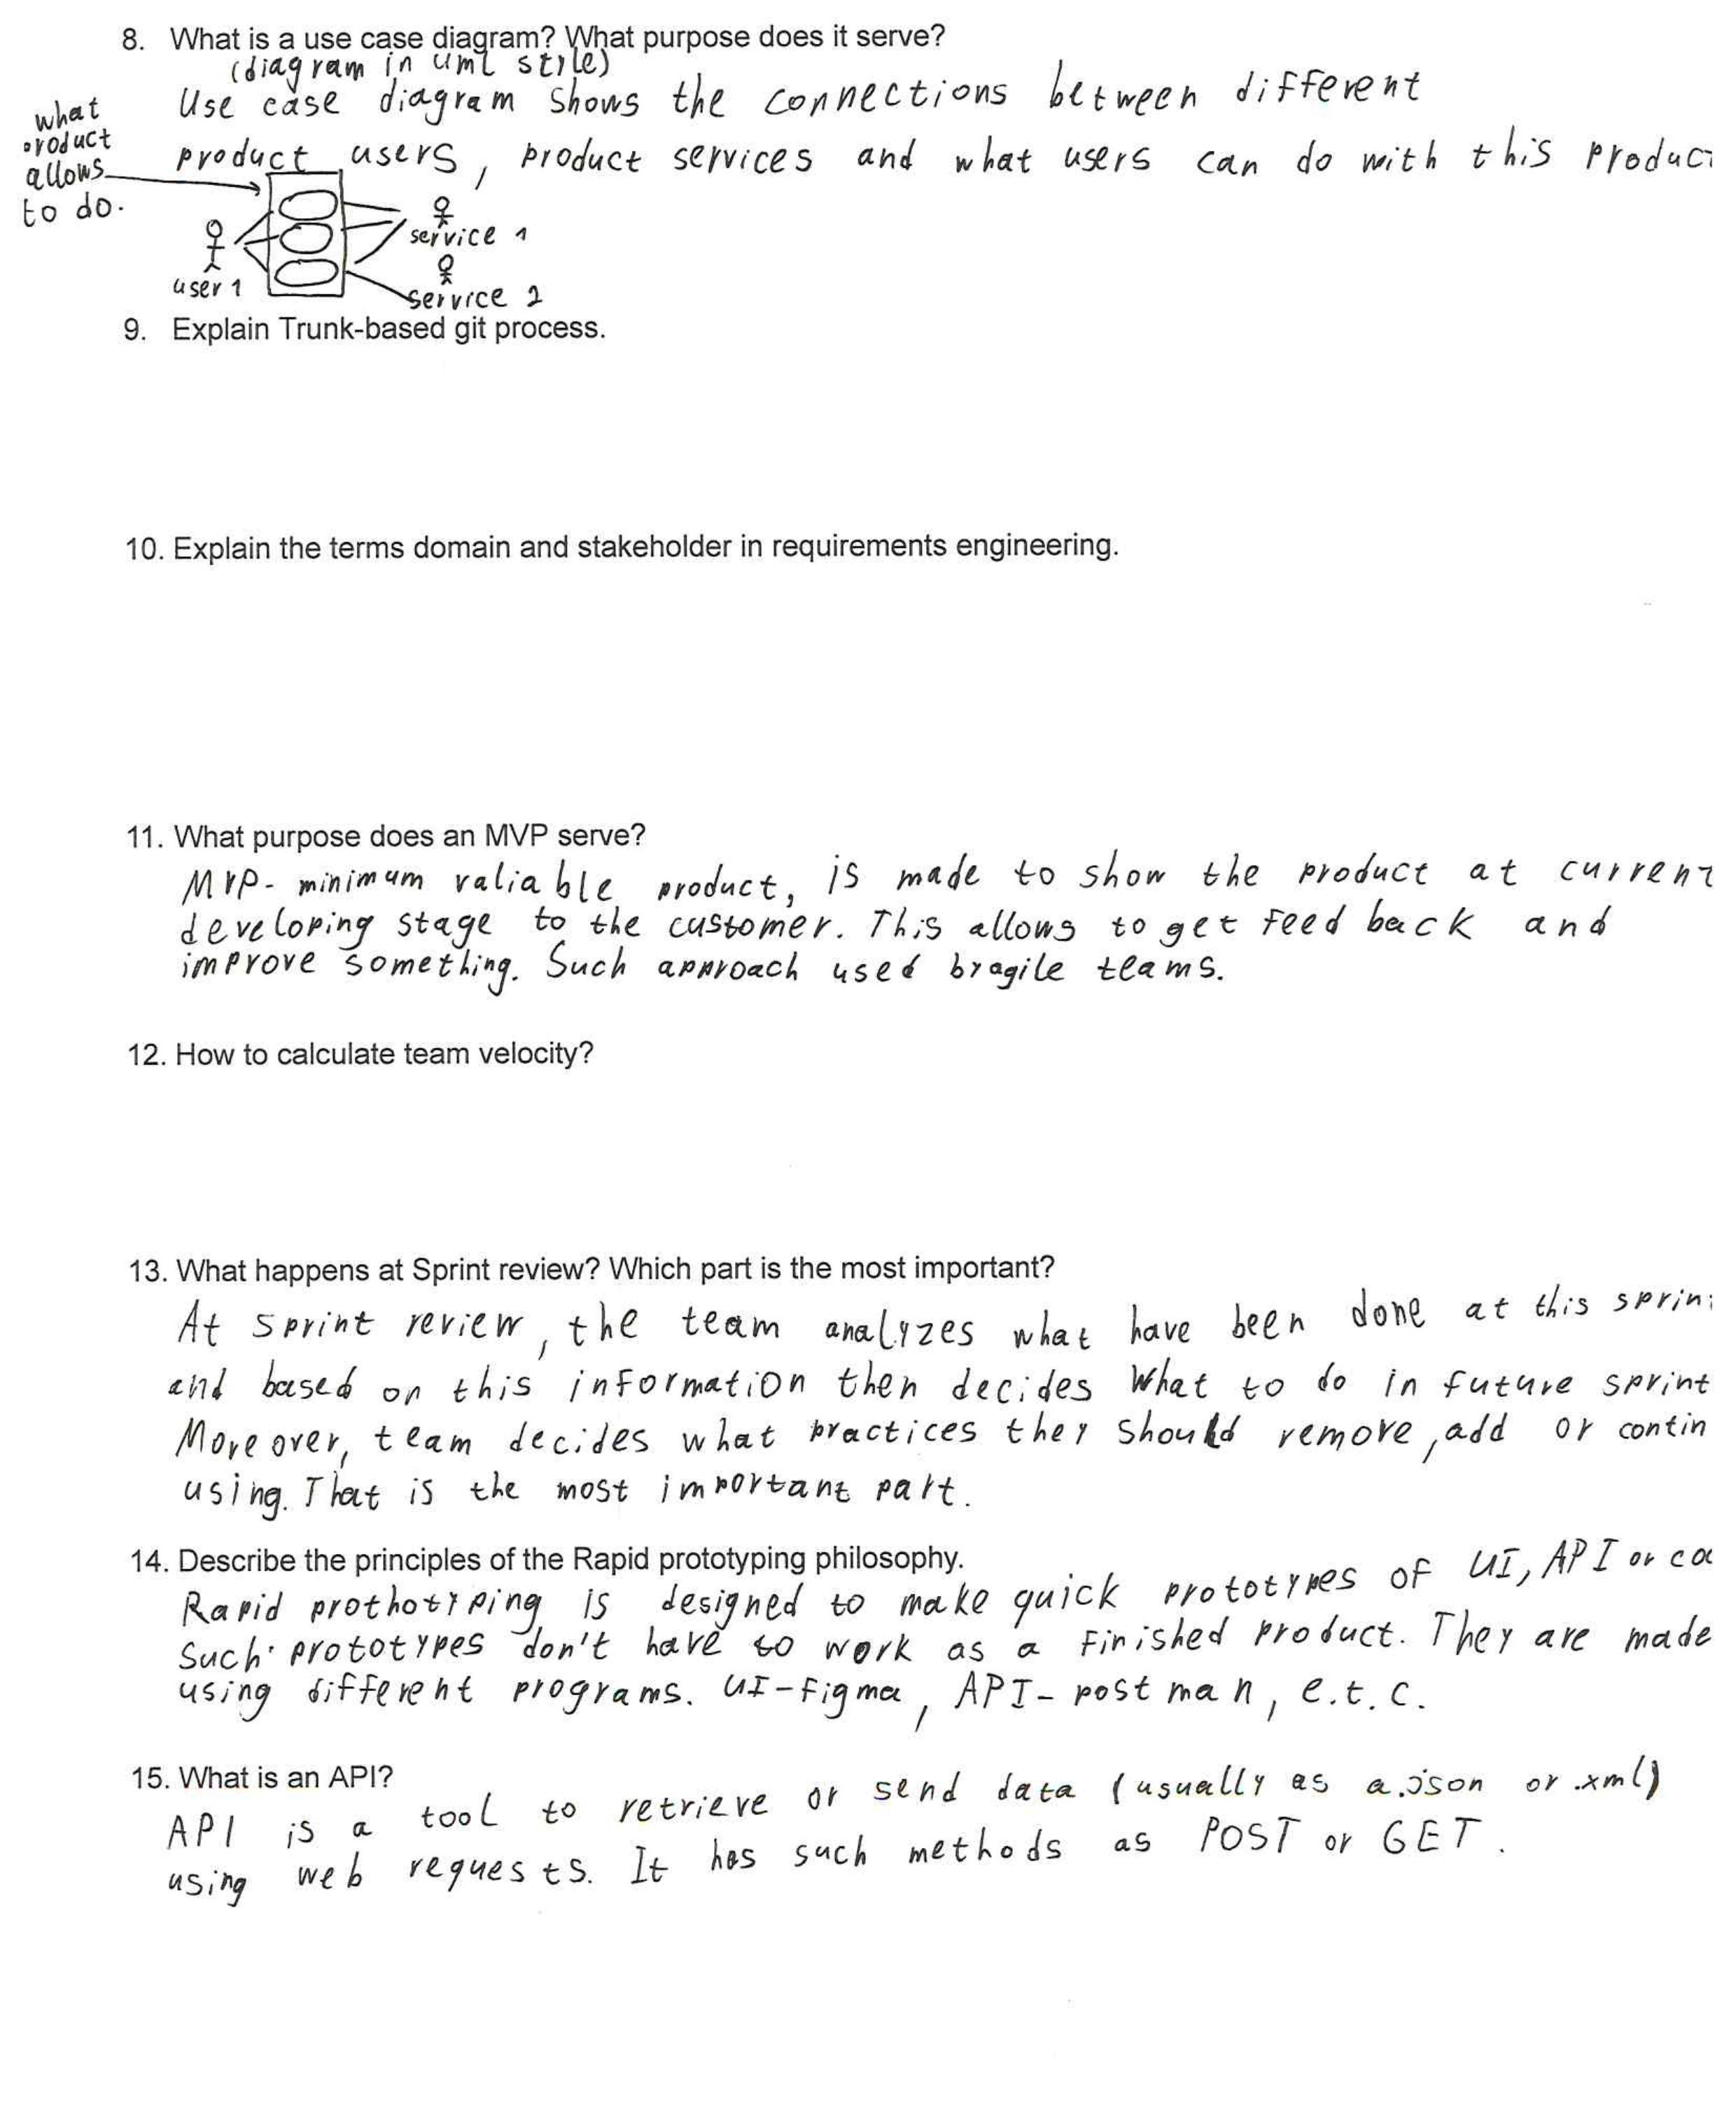 8. What is a use case diagram? What purpose does it serve?
(diagram in uml stile)
Use case diagram shows the connections between different
product users, product services and what users can do with this produc
what
product
allows
to do.
user 1
service 1
service 2
9. Explain Trunk-based git process.
10. Explain the terms domain and stakeholder in requirements engineering.
11. What purpose does an MVP serve?
MVP - minimum valiable product, is made to show the product at current
developing stage to the customer. This allows to get feed back and
improve something. Such approach used by agile teams.
12. How to calculate team velocity?
13. What happens at Sprint review? Which part is the most important?
At sprint review, the team analyzes what have been done at this sprin
and based on this information then decides what to do in future sprint
Moreover, team decides what practices they should remove, add or contin
using. That is the most important part.
14. Describe the principles of the Rapid prototyping philosophy.
Rapid prothotyping is designed to make quick prototypes of UI, API or co
Such prototypes don't have to work as a finished product. They are made
using different programs. UI - figma, API - postman, e.t.c.
15. What is an API?
API is a tool to retrieve or send data (usually as a .json or .xml)
using web requests. It has such methods as POST or GET.